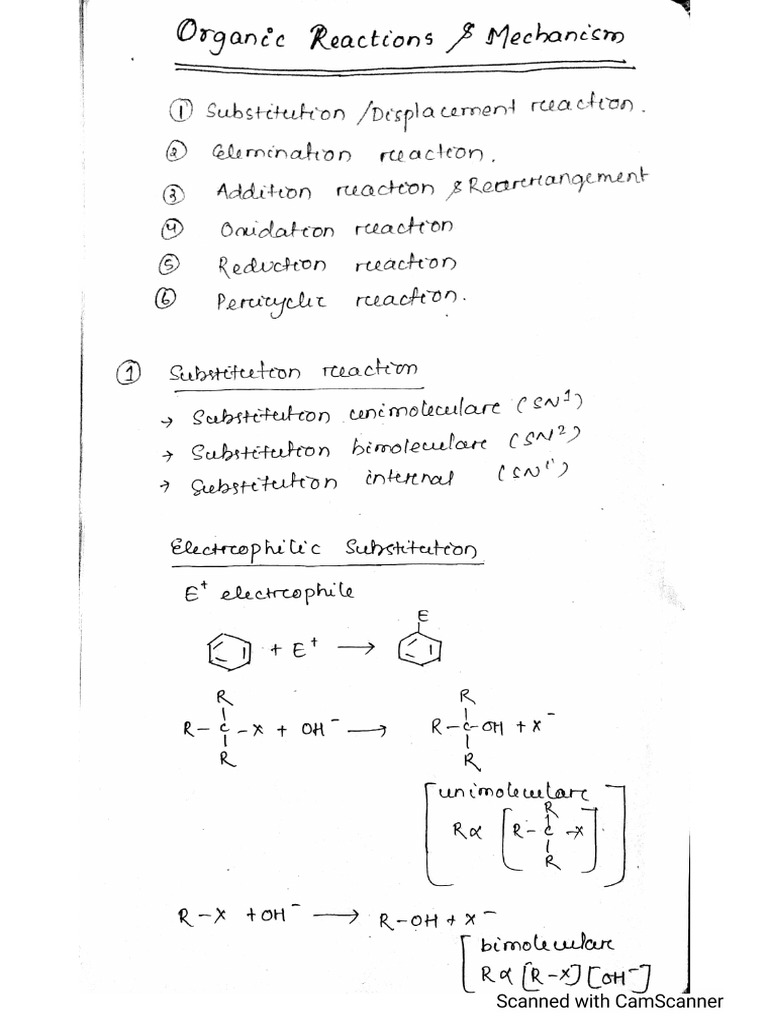 Organic Reactions & Mechanism
① Substitution / Displacement reaction.
② Elemination reaction.
③ Addition reaction & Rearrangement
④ Oxidation reaction
⑤ Reduction reaction
⑥ Pericyclic reaction.
① Substitution reaction
→ Substitution unimoleculare (SN¹)
→ Substitution bimoleculare (SN²)
→ Substitution internal (SNⁱ)
Electrophilic Substitution
E⁺ electrophile
E
+ E⁺ →
R R
R - C - X + OH⁻ → R - C - OH + X⁻
R R
[unimoleculare]
R
R ∝ [R - C - X]
R
R - X + OH⁻ → R - OH + X⁻
[bimoleculare
R ∝ [R - X] [OH⁻]
Scanned with CamScanner